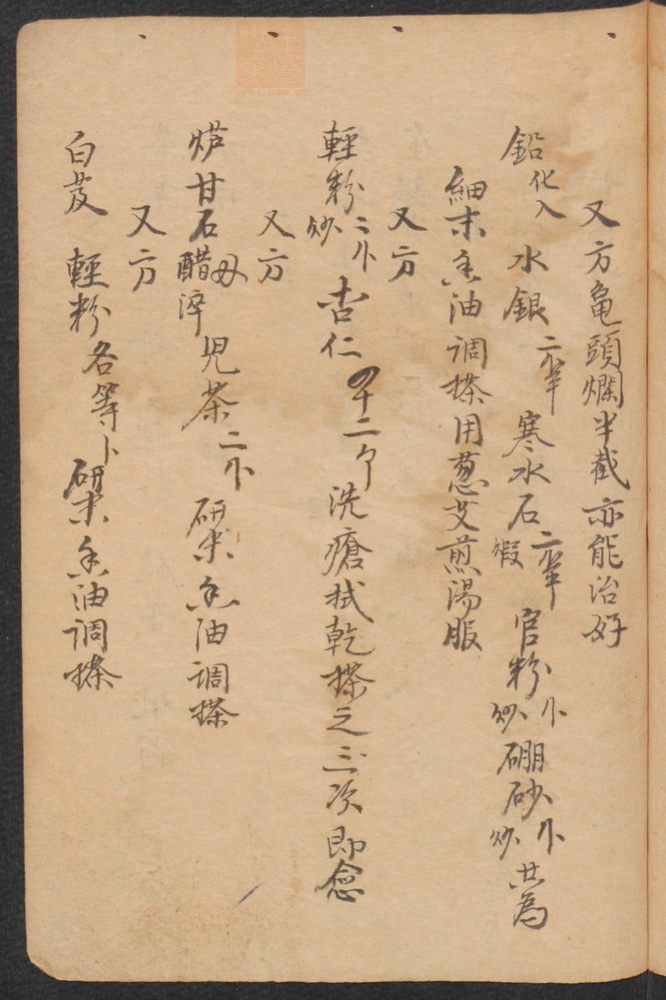 又方龜頭爛半截亦能治好
鉛化入 水銀 寒水石煅 官粉炒 硼砂炒 共為
細末香油调搽用葱艾煎湯服
又方
輕粉炒 杏仁四十二个 洗瘡拭乾搽之三次即愈
又方
炉甘石醋淬 児茶二 研末香油调搽
又方
白芨 輕粉各等 研末香油调搽